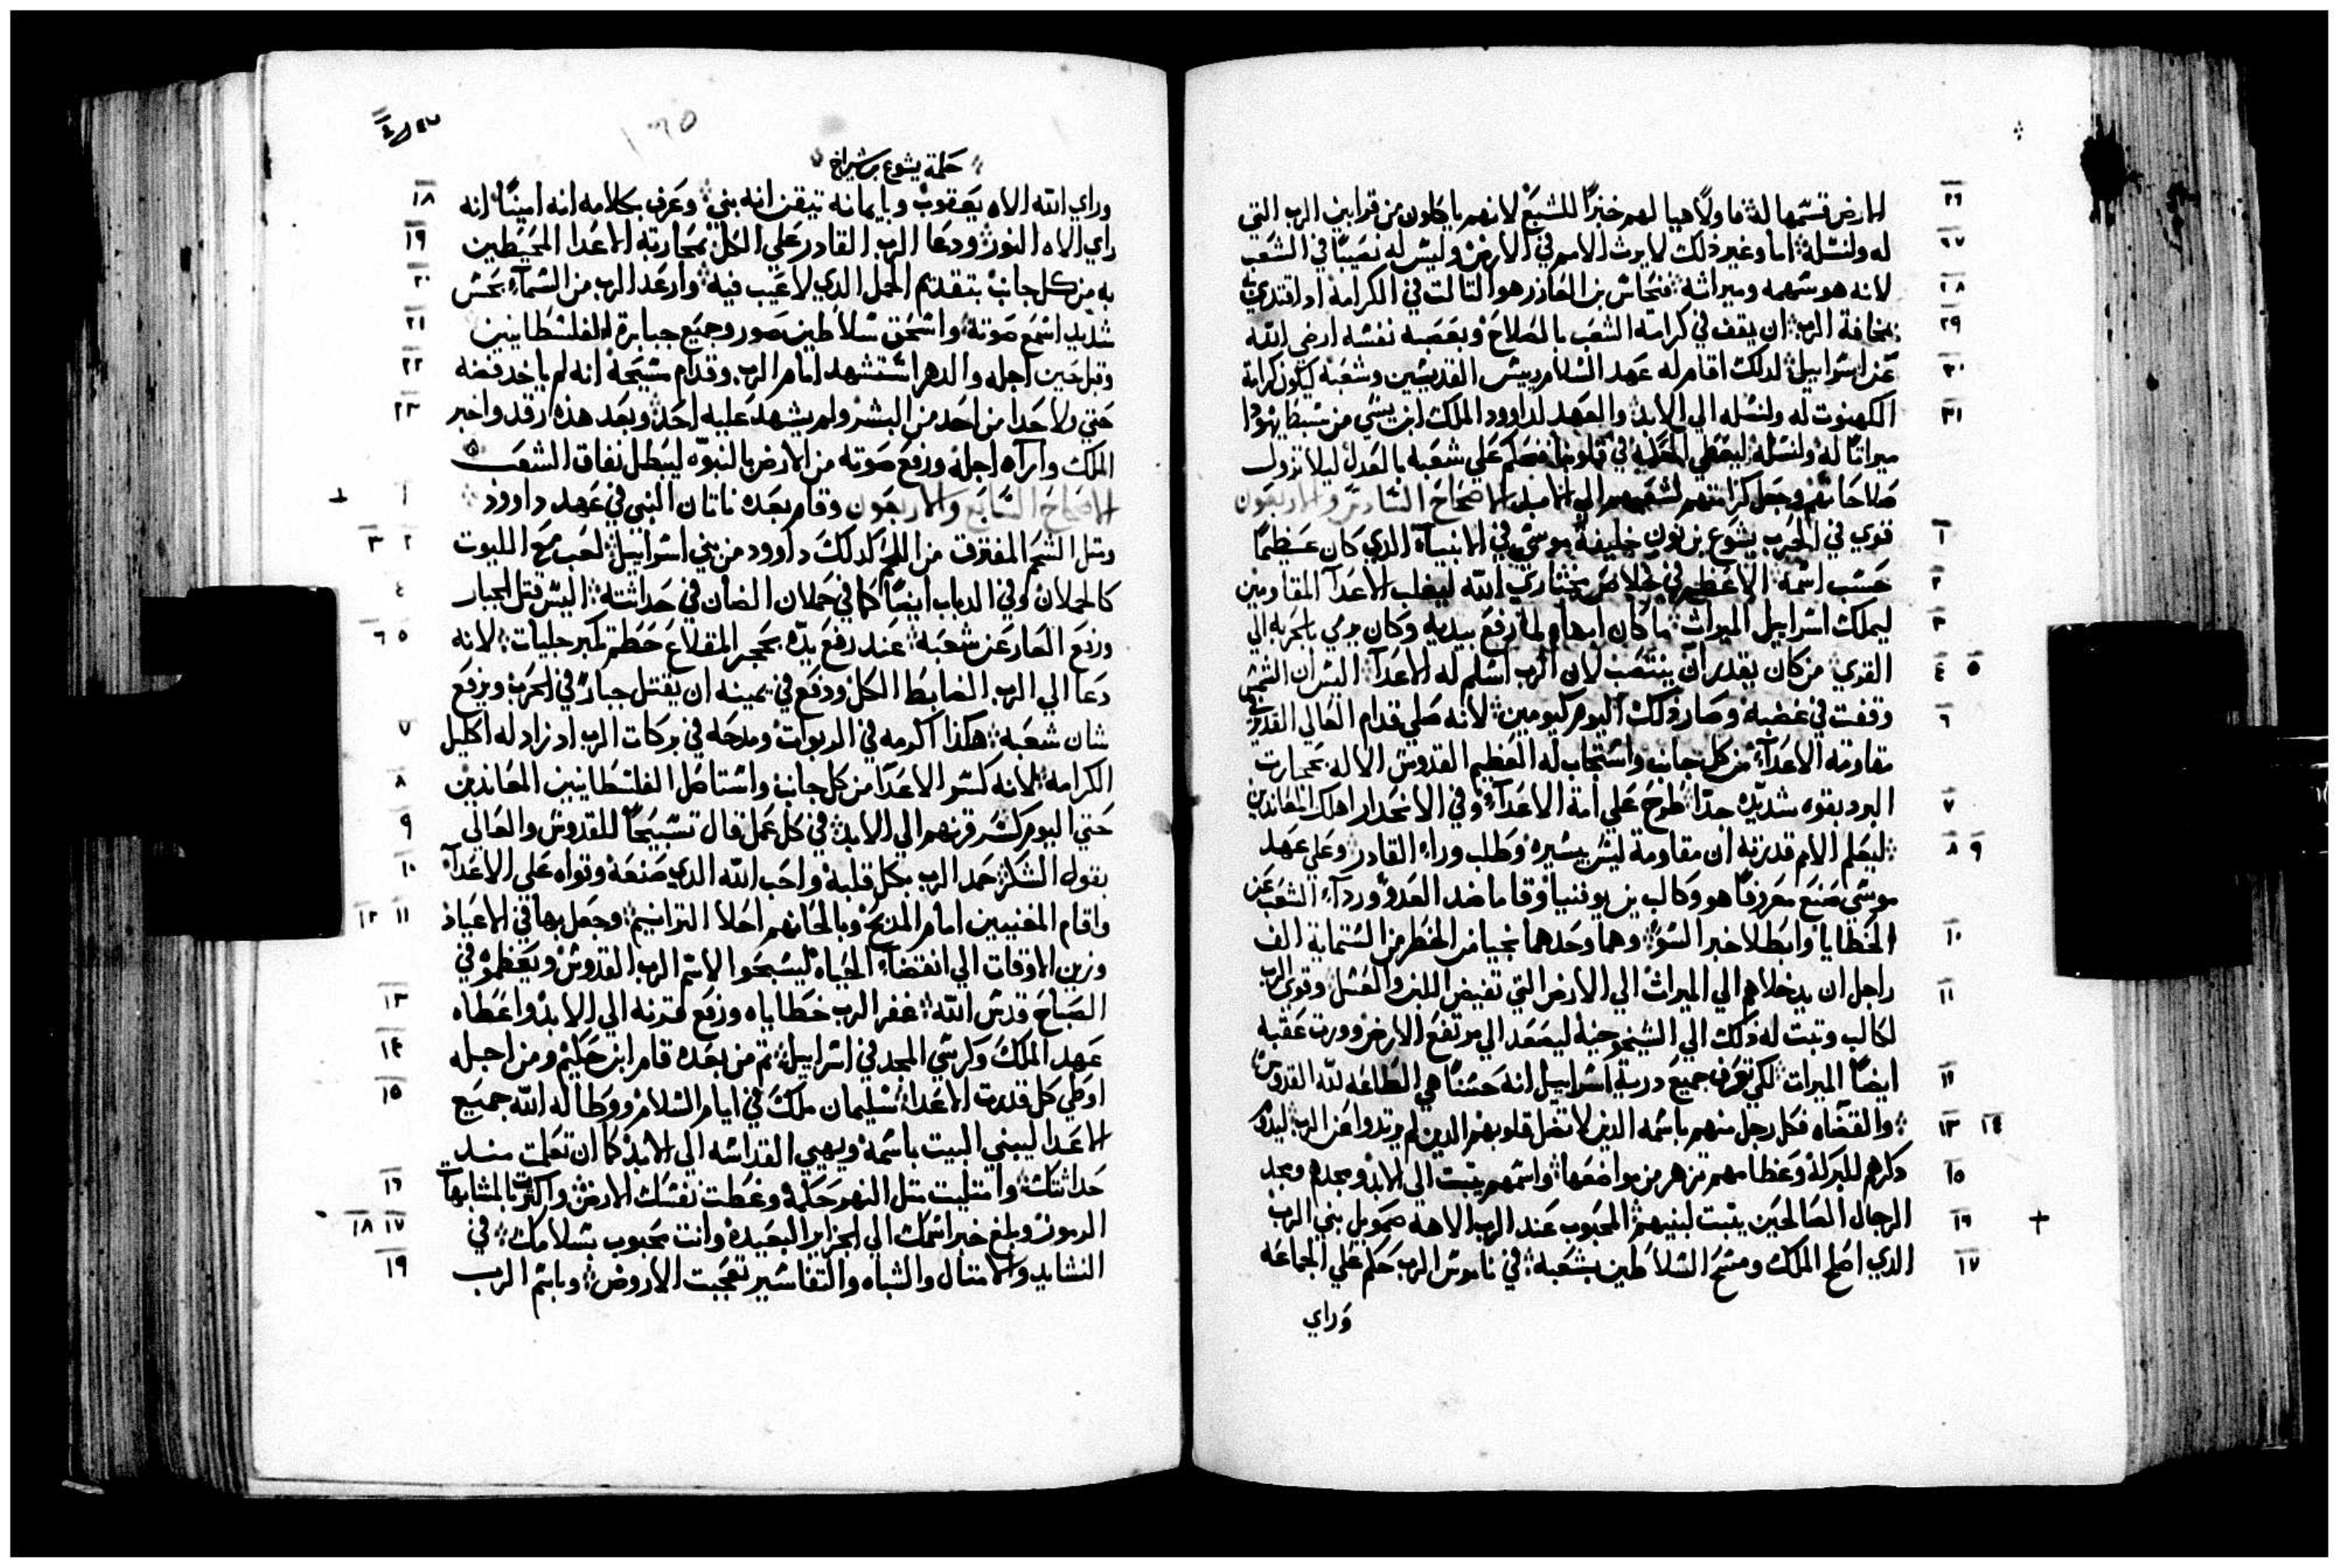 ٢٦ الارض قسّمها له ها ولاً هيا لهم خبزًا للشبع لانهم ياكلون من قرابين الرب التي
٢٧ له ولنسله اما وغير ذلك لا يرث الامم في الارض وليس له نصيبًا في الشعب
٢٨ لانه هو سهمه وميراثه فنحاس بن العازر هو التالت في الكرامة اد اقتدي
٢٩ بمخافة الرب ان يقف في كرامة الشعب بالصلاح وبغصبه نفسه ارضي الله
٣٠ عن اسراييل لدلك اقام له عهد السلام رييس القديسين وشعبه ليكون كرامة
٣١ الكهنوت له ولنسله الي الابد والعهد لداوود الملك ابن يسي من سبط يهودا
ميراثًا له ولنسله ليعطي الحكمه في قلوبنا فنحكم علي شعبه بالعدل ليلا تزول
صلاحاتهم وجعل كرامتهم لشعوبهم الي الابد الاصحاح السادس والاربعون
١ قوي في الحرب يشوع بن نون خليفة موسي في الانبياء الدي كان عظيمًا
٢ حسب اسمه الاعظم في خلاص مختاري الله ليغلب الاعدآ المقاومين
٣ ليملك اسراييل الميراث ما كان ابهاه لما رفع يديه وكان يرمي بالحربه الي
٤ ٥ القري من كان يقدر ان ينتصب لان الرب اسلم له الاعدآ اليس ان الشمس
٦ وقفت في غضبه وصار دلك اليوم كيومين لانه صلي قدام العالي القدير في
مقاومة الاعدآ من كل جانب واستجاب له العظيم القدوس الاله بحجارت
٧ البرد بقوه شديده جدًا طرح علي امة الاعدآ وفي الانحدار اهلك المعاندين
٨ ٩ ليعلم الامم قدرته ان مقاومة ليس يسيره وطلب وراء القادر وعلي عهد
موسي صنع معروفًا هو وكالب بن يوفنيا وقاما ضد العدو وردآء الشعب عن
١٠ الخطايا وابطلا خبر السو وهما وحدهما نجيا من الخطر من الستماية الف
١١ راجل ان يدخلاهم الي الميراث الي الارض التي تفيض اللبن والعسل وقوي الرب
لكالب وتبت له دلك الي الشيخوخية ليصعد الي مرتفع الارض وورت عقبه
١٢ ايضًا الميرات لكي تعرف جميع درية اسراييل انه حسنًا هي الطاعه لله القدوس
١٣ ١٤ والقضاه فكل رجل منهم باسمه الذين لا تضل قلوبهم الدين لم يرتدوا عن الرب ليدوم
١٥ دكرهم للبركة وعظامهم تزهر من مواضعها واسمهم يتبت الي الابد ومجدهم ومجد
١٦ الرجال الصالحين يتبت لبنيهم المحبوب عند الرب الاهه صمويل بني الرب
١٧ الدي اصلح الملك ومسح السلاطين بشعبه في ناموس الرب حكم علي الجماعه
وراي
حكمة يشوع بن شيراخ
١٨ وراي الله الاه يعقوب وبايمانه تيقن انه بني وعرف بكلامه انه امينًا انه
١٩ راي الاه النور ودعا الرب القادر علي الكل بمحاربة الاعدا المحيطين
٢٠ به من كل جانب بتقديم الحمل الدي لا عيب فيه وارعد الرب من السمآء بحس
٢١ شديد اسمع صوته واسحق سلاطين صور وجميع جبابرة الفلسطانيين
٢٢ وقبل حين اجله والدهر استشهد امام الرب وقدام مسيحه انه لم ياخد فضه
٢٣ حتي ولا حدا من احد من البشر ولم يشهد عليه احد وبعد هذه رقد واخبر
الملك وارآه اجله ورفع صوته من الارض بالنبوّه ليبطل نفاق الشعب
١ الاصحاح السابع والاربعون وقام بعده ناتان النبي في عهد داوود
٢ ٣ ومتل الشحم المفترق من اللحم كدلك داوود من بني اسراييل لعب مع الليوت
٤ كالحملان وفي الدباب ايضًا كما في حملان الضان في حداثته اليس قتل الجبار
٥ ٦ ورفع العار عن شعبه عند رفع يده بحجر المقلاع حطم تكبر جليات لانه
دعا الي الرب الضابط الكل ودفع في يمينه ان يقتل جبارًا في الحرب ويرفع
٧ شان شعبه هكذا اكرمه في الربوات ومدحه في بركات الرب اد زاد له اكليل
٨ الكرامه لانه كسر الاعدآ من كل جانب واستاصل الفلسطانيين المعاندين
٩ حتي اليوم كسر قرنهم الي الابد في كل عمل قال تسبيحًا للقدوس والعالي
١٠ بقول الشكر حمد الرب بكل قلبه واحب الله الدي صنعه وقواه علي الاعدآ
١١ ١٢ واقام المغنيين امام المدبح وبالحانهم احلا الترانيم وجعل بها في الاعياد
وزين الاوقات الي انقضاء الحياه ليسبحوا الاسم الرب القدوس ويعظموه في
١٣ الصباح قدس الله غفر الرب خطاياه ورفع قرنه الي الابد واعطاه
١٤ عهد الملك وكرسي المجد في اسراييل تم من بعده قام ابن حكيم ومن اجله
١٥ اوطي كل قدرت الاعدا سليمان ملك في ايام السلام ووطا له الله جميع
الاعدا ليبني البيت باسمه ويهيي القداسه الي الابد كما ان تعلمت مند
١٦ حداثتك وامتليت متل النهر حكمة وغطت نفسك الارض واكترت بالمشابهات
١٧ ١٨ الرموز وبلغ خبر اسمك الي الجزاير البعيده وانت محبوب بسلامك في
١٩ النشايد والامتال والشباه والتفاسير تعجبت الاروض وباسم الرب